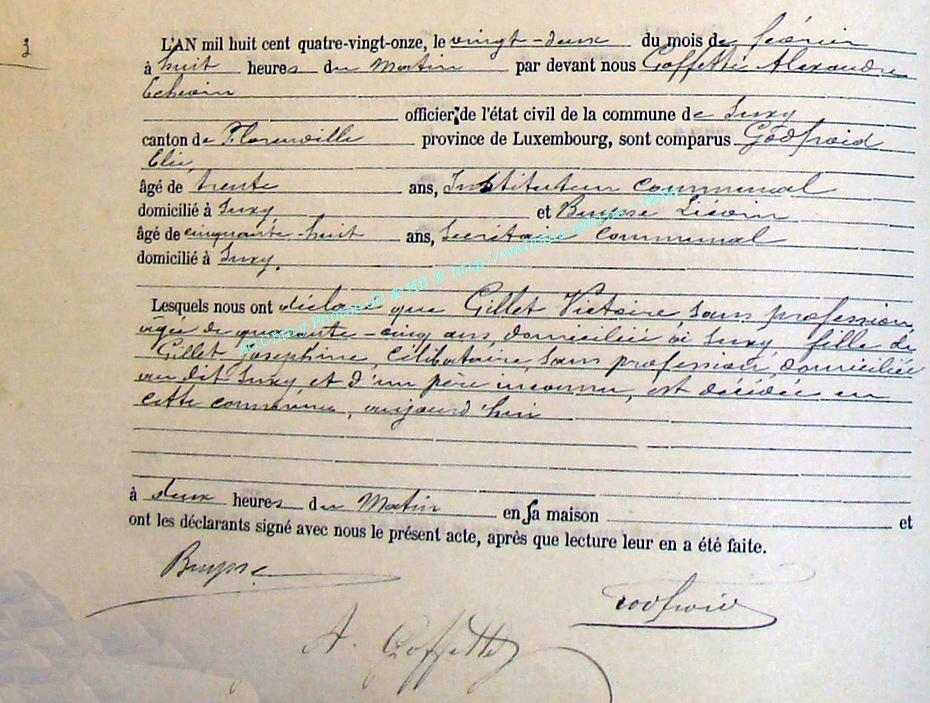 3
L'AN mil huit cent quatre-vingt-onze, le vingt-deux du mois de février
à huit heures du Matin par devant nous Goffette Alexandre
Echevin
officier de l'état civil de la commune de Suxy
canton de Florenville province de Luxembourg, sont comparus Godfroid
Elie,
âgé de trente ans, Instituteur communal
domicilié à Suxy et Buysse Liévin
âgé de cinquante-huit ans, Secrétaire communal
domicilié à Suxy.
Lesquels nous ont déclaré que Gillet Victoire, sans profession,
agée de quarante-cinq ans, domiciliée à Suxy, fille de
Gillet Joséphine, célibataire, sans profession, domiciliée
au dit Suxy, et d'un père inconnu, est décédée en
cette commune, aujourd'hui
à deux heures du Matin en sa maison et
ont les déclarants signé avec nous le présent acte, après que lecture leur en a été faite.
Buysse
Godfroid
A. Goffette